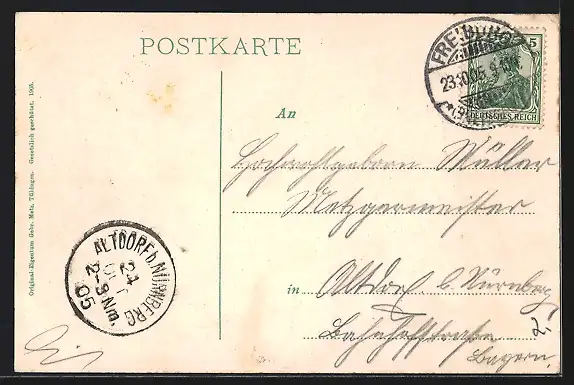 POSTKARTE
FREIBURG
23.10.05
5
DEUTSCHES REICH
An
Hochwohlgeboren Müller
Metzgermeister
in Altdorf b. Nürnberg
Bahnhofstraße
Bayern.
ALTDORF b. NÜRNBERG
24
2-3 Nm.
05
Original-Eigentum Gebr. Metz, Tübingen. Gesetzlich geschützt. 1905.